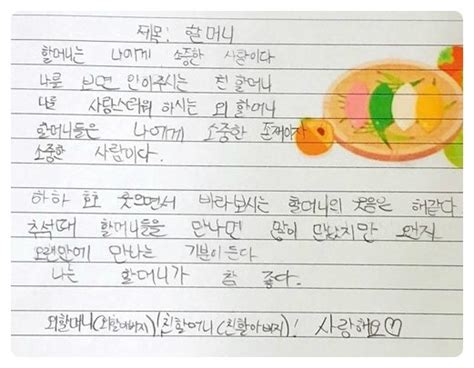 제목: 할머니
할머니는 나에게 소중한 사람이다
나를 보면 안아주시는 친 할머니
나를 사랑스러워 하시는 외 할머니
할머니들은 나에게 소중한 존재이자
소중한 사람이다.
하하 호호 웃으면서 바라보시는 할머니의 웃음은 해같다
추석때 할머니들을 만나면 많이 만났지만 왠지
오랜만에 만나는 기분이 든다
나는 할머니가 참 좋다.
외할머니(외할아버지)! 친할머니(친할아버지)! 사랑해요♡